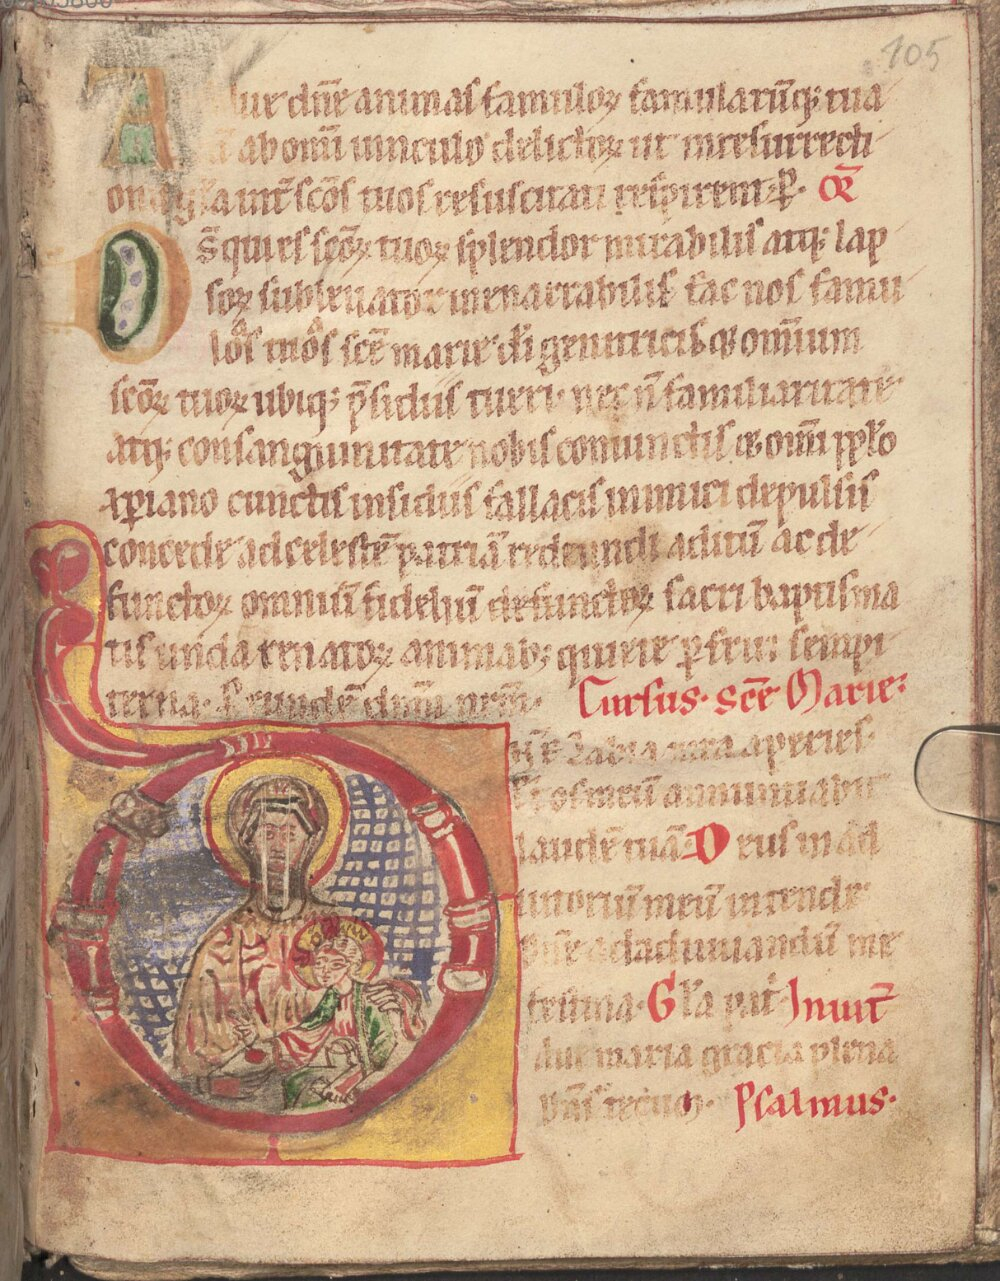 105
A lue dn̄e animas famuloꝝ famularūq; tua
ꝝ ab omī uinculo delictoꝝ ut in resurrecti
onis gl̄a int̄ sc̄os tuos resuscitati respirent. p̄. Or̄
D s̄ qui es sc̄oꝝ tuoꝝ splendor mirabilis atq; lap
soꝝ subleuator inenarrabilis fac nos famu
los tuos sc̄e marie di genitricis & omīum
sc̄oꝝ tuoꝝ ubiq; p̄sidiis tueri. nec n̄ familiaritate
atq; consanguinitate nobis coniunctis & omī pplo
xpiano cunctis insidiis fallacis inimici depulsis
concede ad celestē patriā redeundi aditū ac de
functoꝝ omniūm fidelium defunctoꝝ sacri baptisma
tis unda renatoꝝ animab; quiete pfrui sempi
terna. p eundē dnm nrm. Cursus. sc̄e Marie.
D n̄e labia mea aperies.
& os meū annuntiabit
laudē tuā. D eus in ad
iutoriū meū intende
Dn̄e ad adiuuandū me
festina. Gl̄a pat̄. Inuit̄
Aue maria gracia plena
dn̄s tecum. Psalmus.